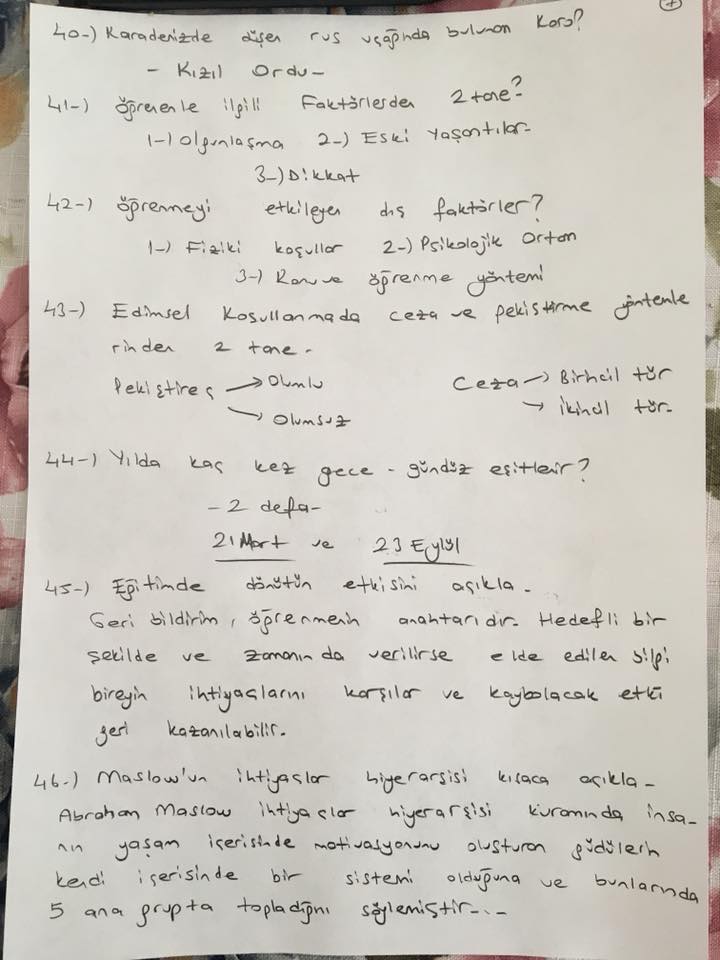 40-) Karadenizde düşen rus uçağında bulunan koro?
- Kızıl Ordu -
41-) öğrenenle ilgili Faktörlerden 2 tane?
1-) Olgunlaşma 2-) Eski Yaşantılar-
3-) Dikkat
42-) öğrenmeyi etkileyen dış faktörler?
1-) Fiziki koşullar 2-) Psikolojik Ortam
3-) Konu ve öğrenme yöntemi
43-) Edimsel Koşullanmada ceza ve pekiştirme yöntemle
rinden 2 tane-
Pekiştireç → Olumlu
→ Olumsuz
Ceza → Birincil tür
→ İkincil tür.
44-) Yılda kaç kez gece - gündüz eşitlenir?
- 2 defa -
21 Mart ve 23 Eylül
45-) Eğitimde dönütün etkisini açıkla.
Geri bildirim, öğrenmenin anahtarıdır. Hedefli bir
şekilde ve zamanında verilirse elde edilen bilgi
bireyin ihtiyaçlarını karşılar ve kaybolacak etki
geri kazanılabilir.
46-) Maslow'un ihtiyaçlar hiyerarşisi kısaca açıkla-
Abraham Maslow ihtiyaçlar hiyerarşisi kuramında insa-
nın yaşam içerisinde motivasyonunu oluşturan güdülerin
kendi içerisinde bir sistemi olduğuna ve bunlarında
5 ana grupta topladığını söylemiştir...